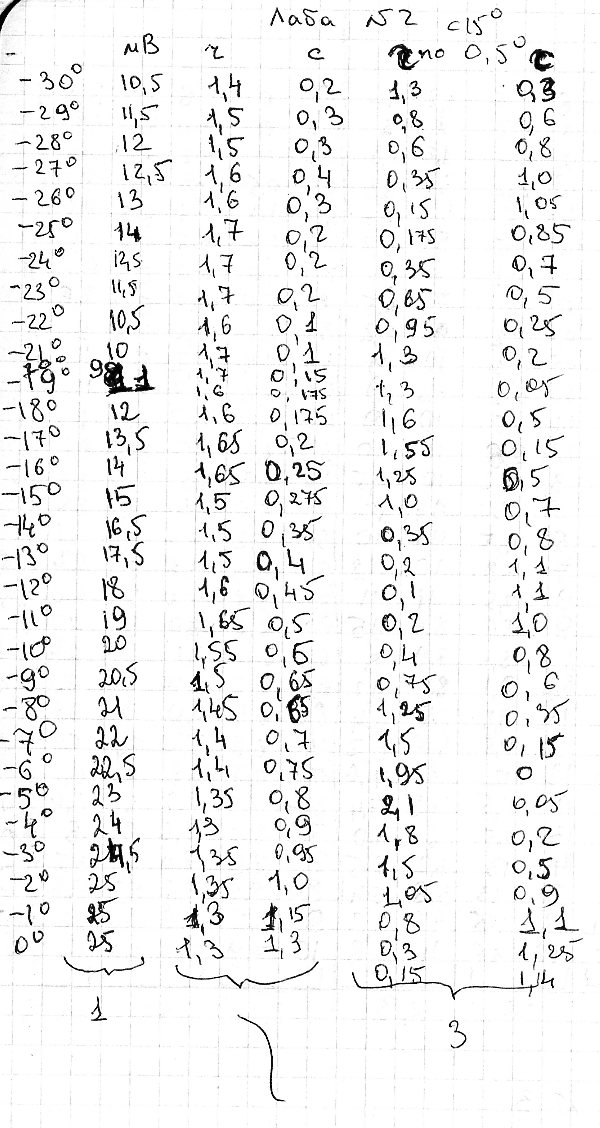 Лаба №2 с 15°
мВ г с г по 0,5° с
-30° 10,5 1,4 0,2 1,3 0,3
-29° 11,5 1,5 0,3 0,8 0,6
-28° 12 1,5 0,3 0,6 0,8
-27° 12,5 1,6 0,4 0,35 1,0
-26° 13 1,6 0,3 0,15 1,05
-25° 14 1,7 0,2 0,175 0,85
-24° 12,5 1,7 0,2 0,35 0,7
-23° 11,5 1,7 0,2 0,65 0,5
-22° 10,5 1,6 0,1 0,95 0,25
-21° 10 1,7 0,1 1,3 0,2
1,7 0,15
-19° 11 1,6 0,175 1,3 0,05
-18° 12 1,6 0,175 1,6 0,5
-17° 13,5 1,65 0,2 1,55 0,15
-16° 14 1,65 0,25 1,25 0,5
-15° 15 1,5 0,275 1,0 0,7
-14° 16,5 1,5 0,35 0,35 0,8
-13° 17,5 1,5 0,4 0,2 1,1
-12° 18 1,6 0,45 0,1 1,1
-11° 19 1,65 0,5 0,2 1,0
-10° 20 1,55 0,6 0,4 0,8
-9° 20,5 1,5 0,65 0,75 0,6
-8° 21 1,45 0,65 1,25 0,35
-7° 22 1,4 0,7 1,5 0,15
-6° 22,5 1,4 0,75 1,95 0
-5° 23 1,35 0,8 2,1 0,05
-4° 24 1,3 0,9 1,8 0,2
-3° 24,5 1,35 0,95 1,5 0,5
-2° 25 1,35 1,0 1,05 0,9
-1° 25 1,3 1,15 0,8 1,1
0° 25 1,3 1,3 0,3 1,25
0,15 1,4
1 3